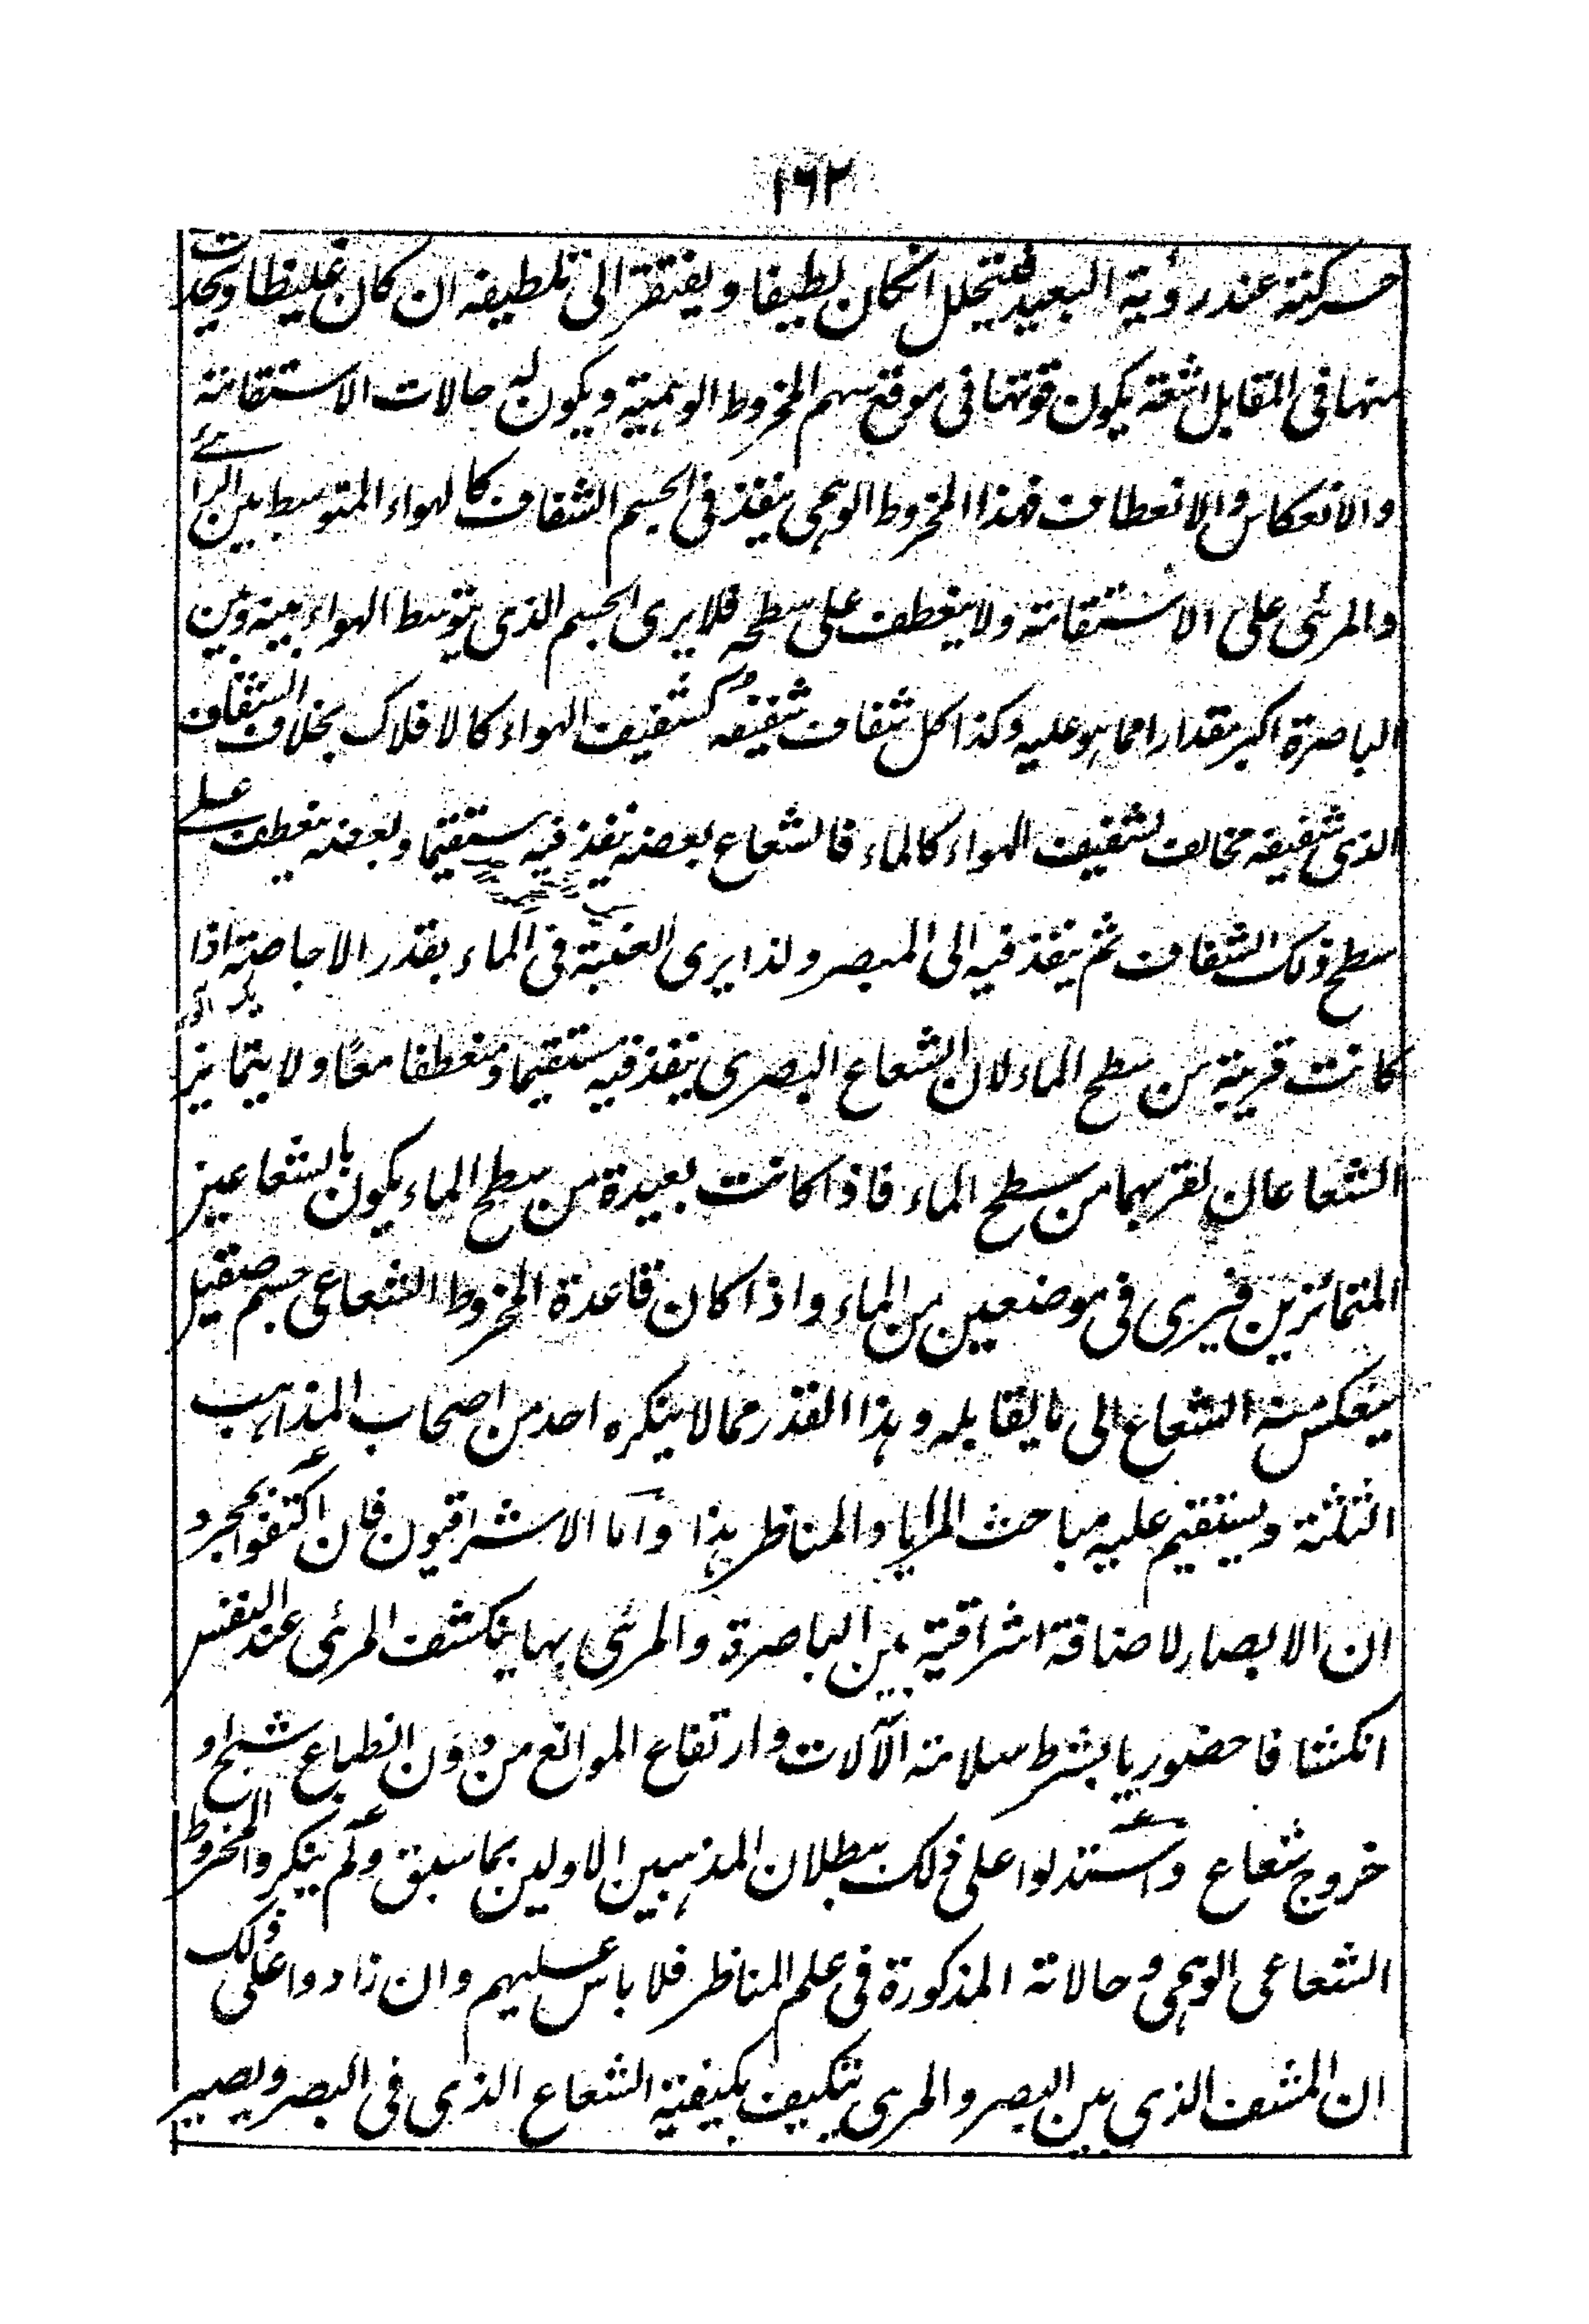 ١٦٢
حركته عند رؤية البعيد فيتحلل انكان لطيفا ويفتقر الى تلطيفه ان كان غليظا ويحدث
منها فى المقابل اشعة يكون قوتها فى موقع سهم المخروط الوهمية ويكون له حالات الاستقامة
والانعكاس والانعطاف فهذا المخروط الوهمى ينفذ فى الجسم الشفاف كالهواء المتوسط بين الرائے
والمرئى على الاستقامة ولا ينعطف على سطحه فلا يرى الجسم الذى يتوسط الهواء بينه وبين
الباصرة اكبر مقدارا مما هو عليه وكذا كل شفاف شفيفه كشفيف الهواء كالافلاك بخلاف الشفاف
الذى شفيفه مخالف لشفيف الهواء كالماء فالشعاع بعضه ينفذ فيه مستقيما وبعضه ينعطف علے
سطح ذلك الشفاف ثم ينفذ فيه الى المبصر ولذا يرى العنبة فى الماء بقدر الاجاصة اذا
كانت قريبة من سطح الماء لان الشعاع البصرى ينفذ فيه مستقيما ومنعطفا معًا ولا يتمايز
الشعاعان لقربهما من سطح الماء فاذا كانت بعيدة من سطح الماء يكون بالشعاعين
المتمائزين فيرى فى موضعين من الماء واذا كان قاعدة المخروط الشعاعى جسم صقيل
ينعكس منه الشعاع الى ما يقابله وهذا القدر مما لا ينكره احد من اصحاب المذاهب
الثلثة ويستقيم عليه مباحث المرايا والمناظر هذا واما الاشراقيون فان اكتفوا بمجرد
ان الابصار لاضافة اشراقية بين الباصرة والمرئى بها ينكشف المرئى عند النفس
انكشافا حضوريا بشرط سلامة الآلات وارتفاع الموانع من دون انطباع شبح او
خروج شعاع واستدلوا على ذلك ببطلان المذهبين الاولين بما سبق ولم ينكروا المخروط
الشعاعى الوهمى وحالاته المذكورة فى علم المناظر فلا باس عليهم وان زادوا على ذلك
ان المشف الذى بين البصر والمرى يتكيف بكيفية الشعاع الذى فى البصر ويصير